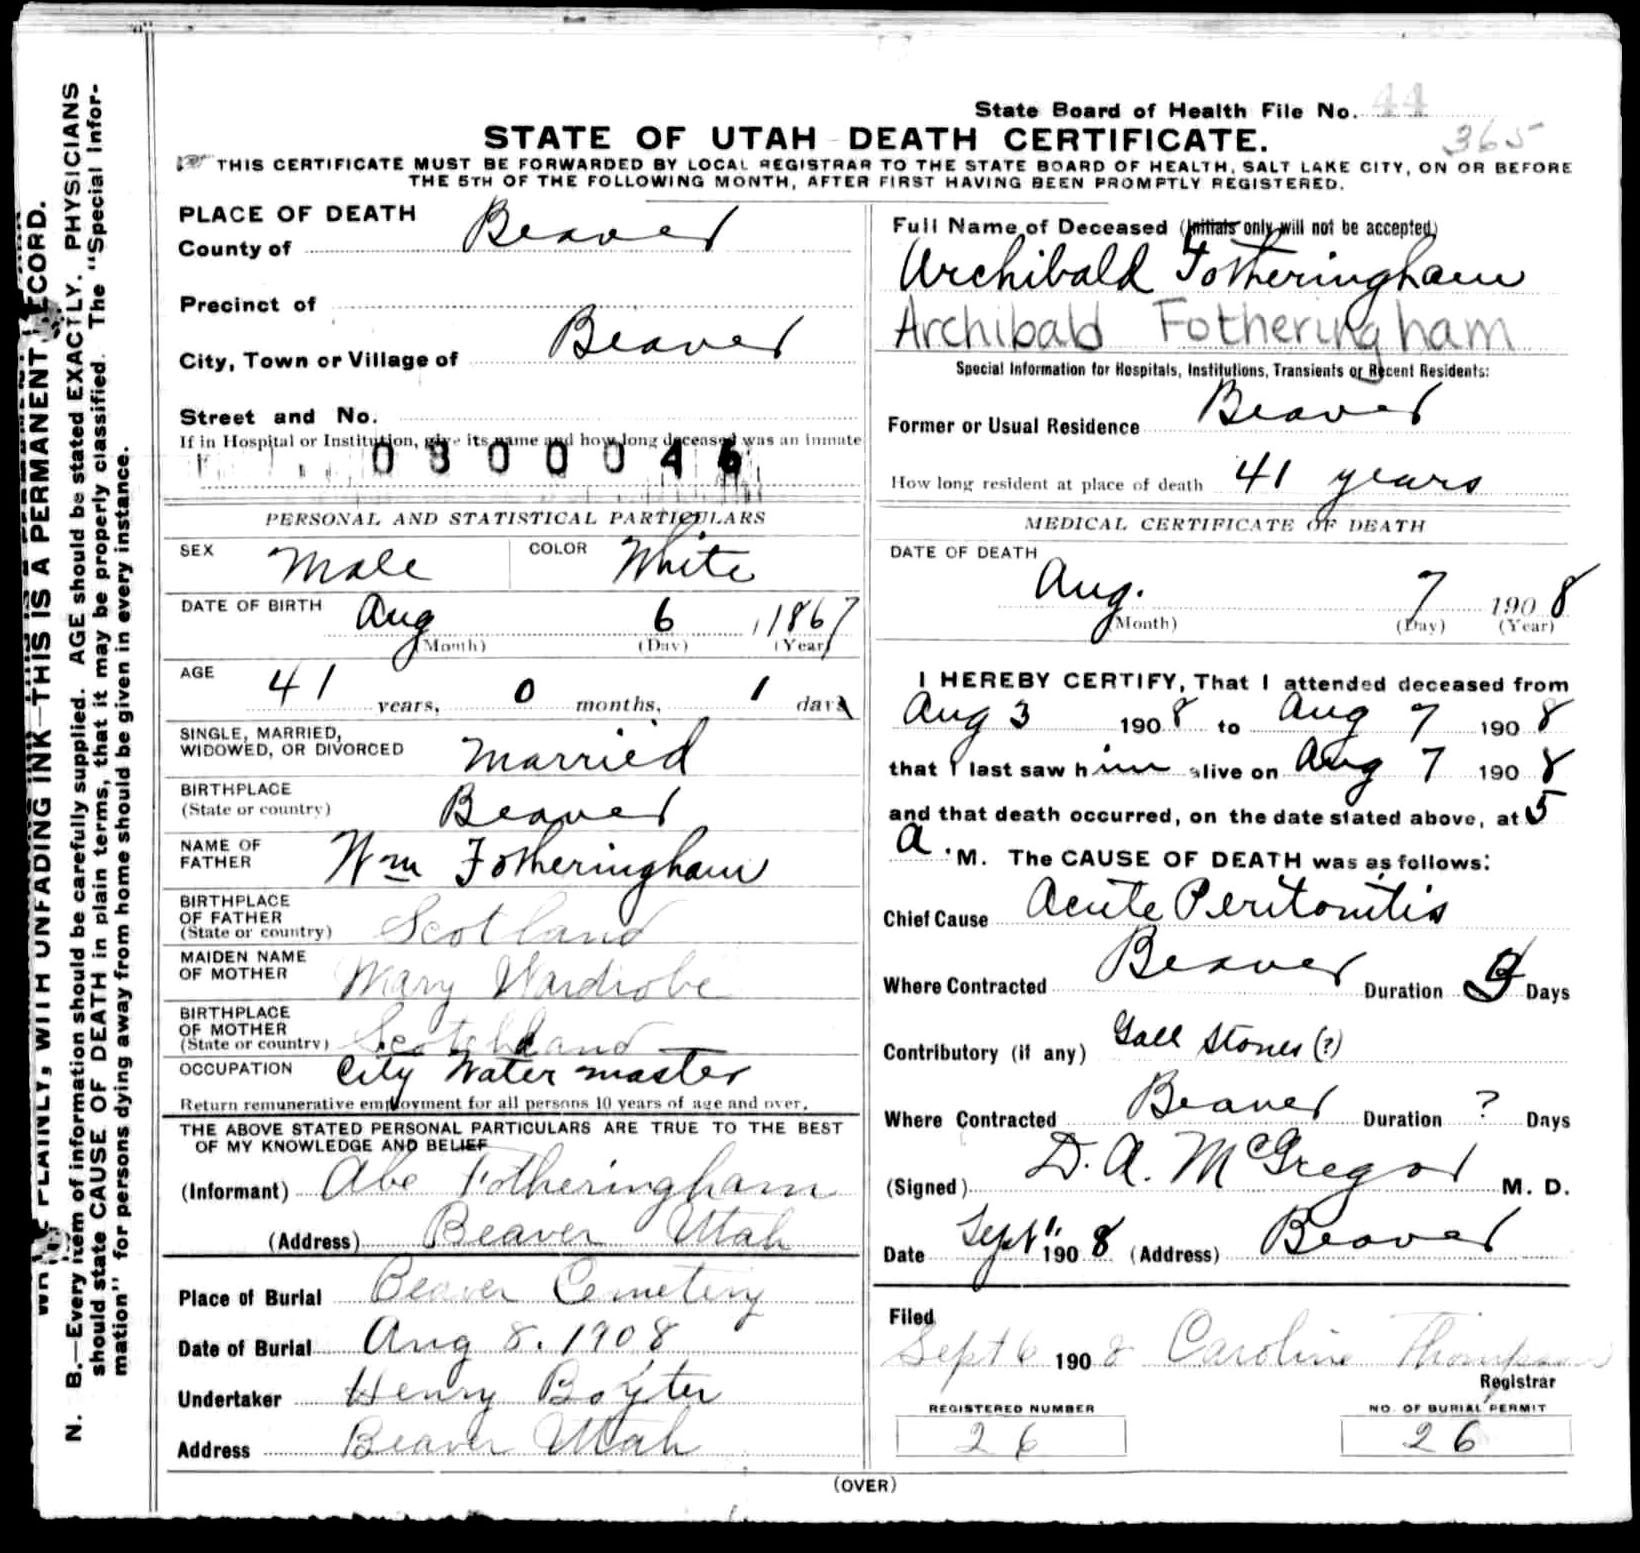 State Board of Health File No. 44
365
STATE OF UTAH DEATH CERTIFICATE.
THIS CERTIFICATE MUST BE FORWARDED BY LOCAL REGISTRAR TO THE STATE BOARD OF HEALTH, SALT LAKE CITY, ON OR BEFORE
THE 5TH OF THE FOLLOWING MONTH, AFTER FIRST HAVING BEEN PROMPTLY REGISTERED.
PLACE OF DEATH
County of Beaver
Precinct of
City, Town or Village of Beaver
Street and No.
If in Hospital or Institution, give its name and how long deceased was an inmate
0300046
PERSONAL AND STATISTICAL PARTICULARS
SEX Male COLOR White
DATE OF BIRTH Aug 6, 1867
(Month) (Day) (Year)
AGE 41 years, 0 months, 1 days
SINGLE, MARRIED,
WIDOWED, OR DIVORCED Married
BIRTHPLACE
(State or country) Beaver
NAME OF
FATHER Wm Fotheringham
BIRTHPLACE
OF FATHER
(State or country) Scotland
MAIDEN NAME
OF MOTHER Mary Wardrobe
BIRTHPLACE
OF MOTHER
(State or country) Scotchland
OCCUPATION City Water master
Return remunerative employment for all persons 10 years of age and over.
THE ABOVE STATED PERSONAL PARTICULARS ARE TRUE TO THE BEST
OF MY KNOWLEDGE AND BELIEF
(Informant) Abe Fotheringham
(Address) Beaver Utah
Place of Burial Beaver Cemetery
Date of Burial Aug 8. 1908
Undertaker Henry Boyter
Address Beaver Utah
Full Name of Deceased (Initials only will not be accepted)
Archibald Fotheringham
Archibald Fotheringham
Special Information for Hospitals, Institutions, Transients or Recent Residents:
Former or Usual Residence Beaver
How long resident at place of death 41 years
MEDICAL CERTIFICATE OF DEATH
DATE OF DEATH
Aug. 7 1908
(Month) (Day) (Year)
I HEREBY CERTIFY, That I attended deceased from
Aug 3 1908 to Aug 7 1908
that I last saw him alive on Aug 7 1908
and that death occurred, on the date stated above, at 5
a. M. The CAUSE OF DEATH was as follows:
Chief Cause Acute Peritonitis
Where Contracted Beaver Duration Days
Contributory (if any) Gall Stones (?)
Where Contracted Beaver Duration ? Days
(Signed) D. A. McGregor M. D.
Date Sept 1, 1908 (Address) Beaver
Filed
Sept 6 1908 Caroline Thompson
Registrar
REGISTERED NUMBER
26
NO. OF BURIAL PERMIT
26
(OVER)
WRITE PLAINLY, WITH UNFADING INK—THIS IS A PERMANENT RECORD.
N. B.—Every item of information should be carefully supplied. AGE should be stated EXACTLY. PHYSICIANS
should state CAUSE OF DEATH in plain terms, that it may be properly classified. The "Special Infor-
mation" for persons dying away from home should be given in every instance.